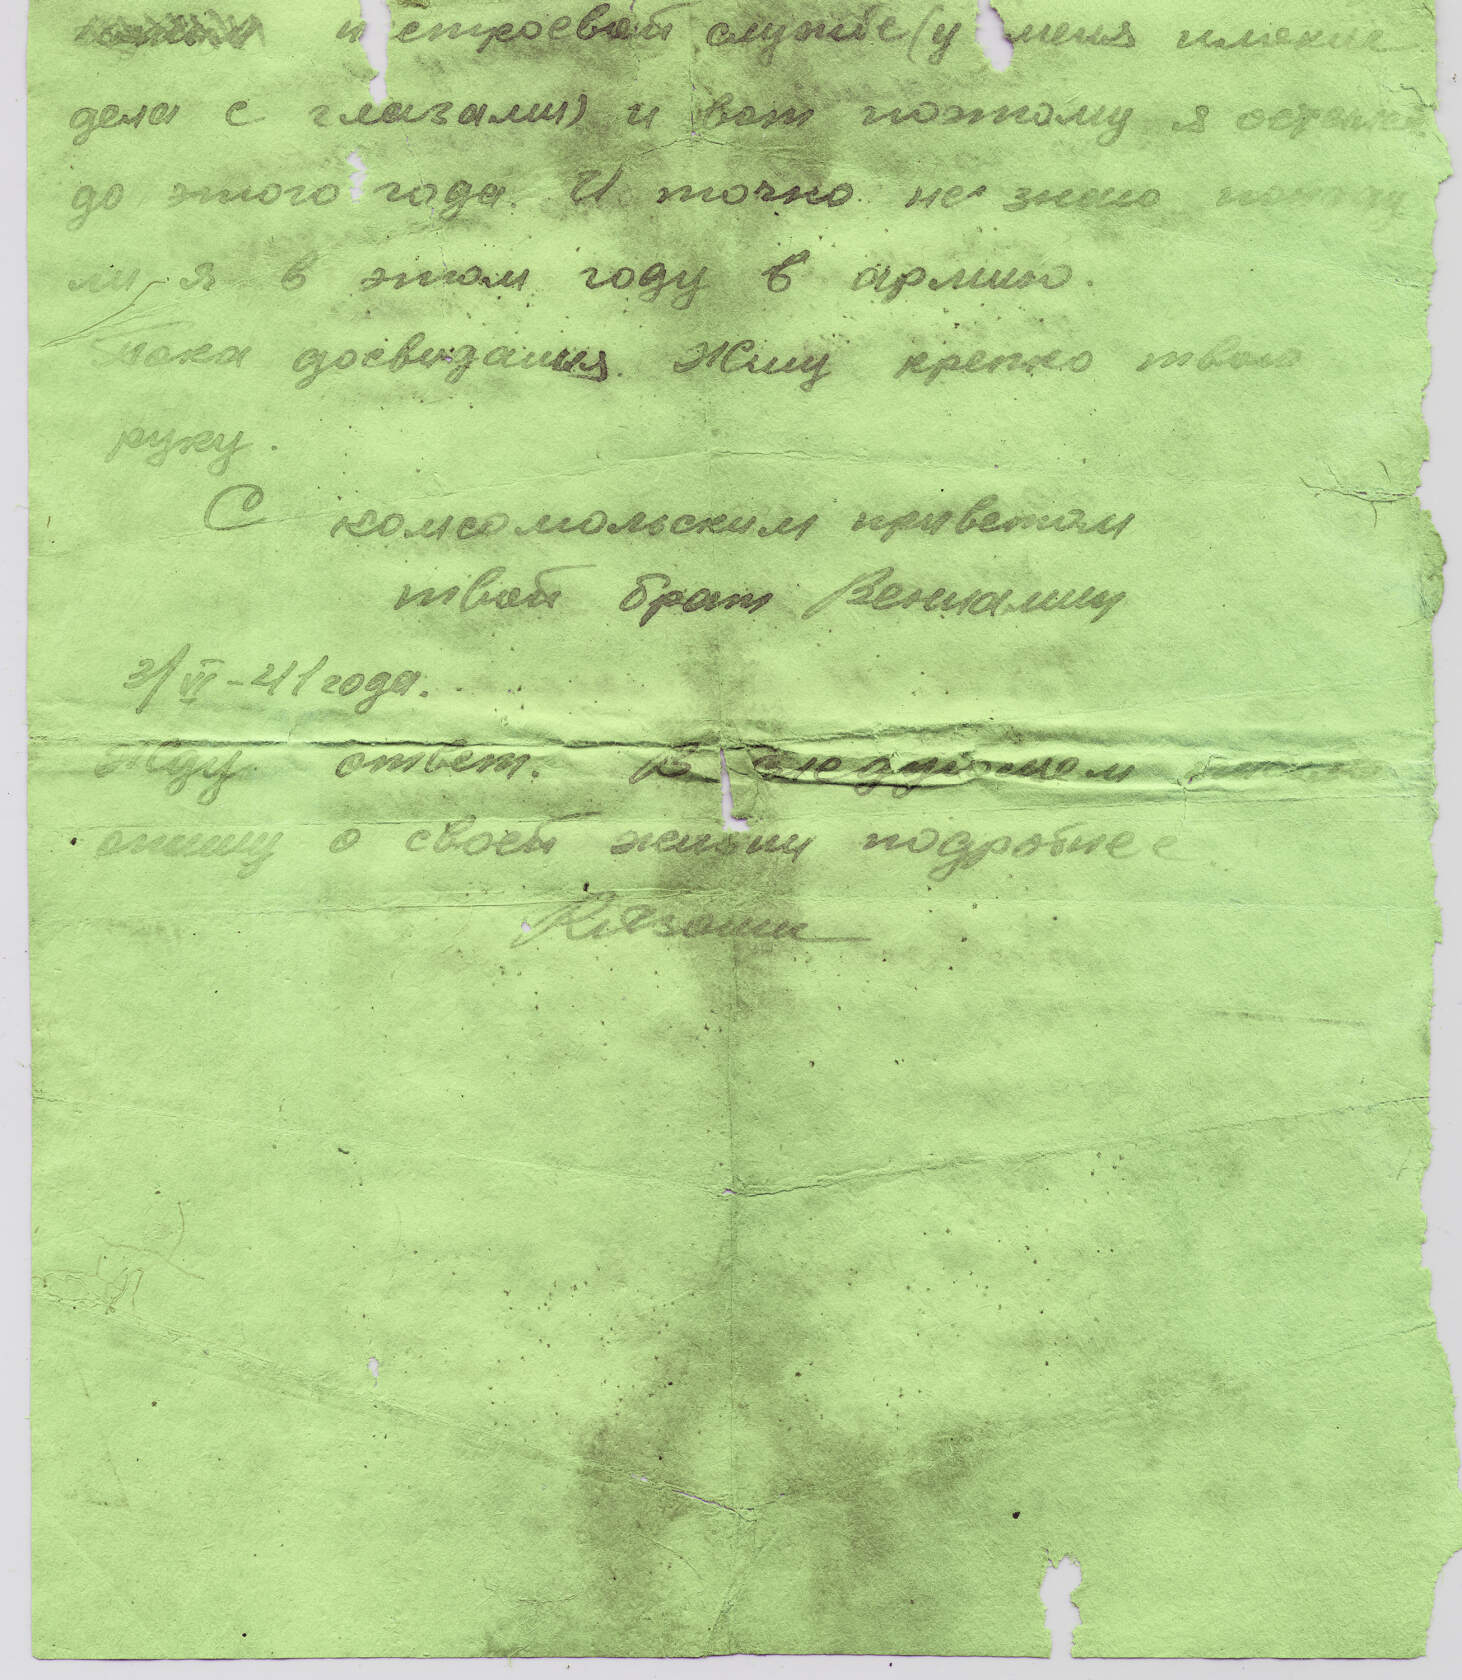 к строевой службе (у меня плохие
дела с глазами) и вот поэтому я остался
до этого года. И точно не знаю попаду
ли я в этом году в армию.
Пока досвидания. Жму крепко твою
руку.
С комсомольским приветом
твой брат Вениамин
3/VI-41 года.
Жду ответ. В следующем письме
опишу о своей жизни подробнее.